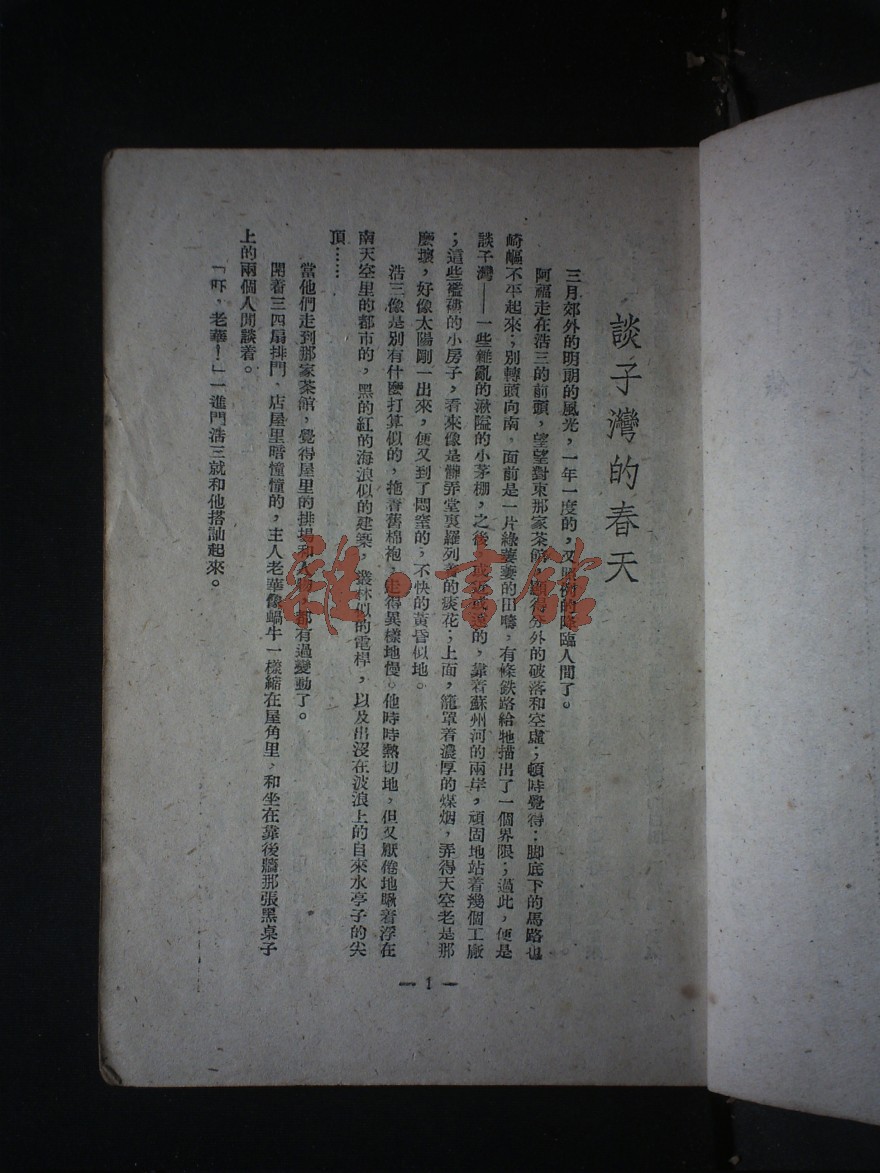 談子灣的春天
三月郊外的明朗的風光，一年一度的，又照例的降臨人間了。
阿福走在浩三的前頭，望望對東那家茶館，顯得分外的破落和空虛；頓時覺得；脚底下的馬路也
崎嶇不平起來；別轉頭向南，面前是一片綠萋萋的田疇，有條鉄路給牠描出了一個界限；過此，便是
談子灣——一些雜亂的湫隘的小茅棚，之後，或近或遠的，靠着蘇州河的兩岸，頑固地站着幾個工廠
；這些襤褸的小房子，看來像是髒弄堂裏羅列着的痰花；上面，籠罩着濃厚的煤烟，弄得天空老是那
麼壞，好像太陽剛一出來，便又到了悶窒的，不快的黃昏似地。
浩三像是別有什麼打算似的，拖着舊棉袍，走得異樣地慢。他時時熱切地，但又厭倦地瞅着浮在
南天空里的都市的，黑的紅的海浪似的建築，叢林似的電桿，以及出沒在波浪上的自來水亭子的尖
頂……
當他們走到那家茶館，覺得屋里的排場和人物，都有過變動了。
開着三四扇排門，店屋里暗憧憧的，主人老華像蝸牛一樣縮在屋角里，和坐在靠後牆那張黑桌子
上的兩個人閒談着。
「吓，老華！」一進門浩三就和他搭訕起來。
— 1 —
雜·書館